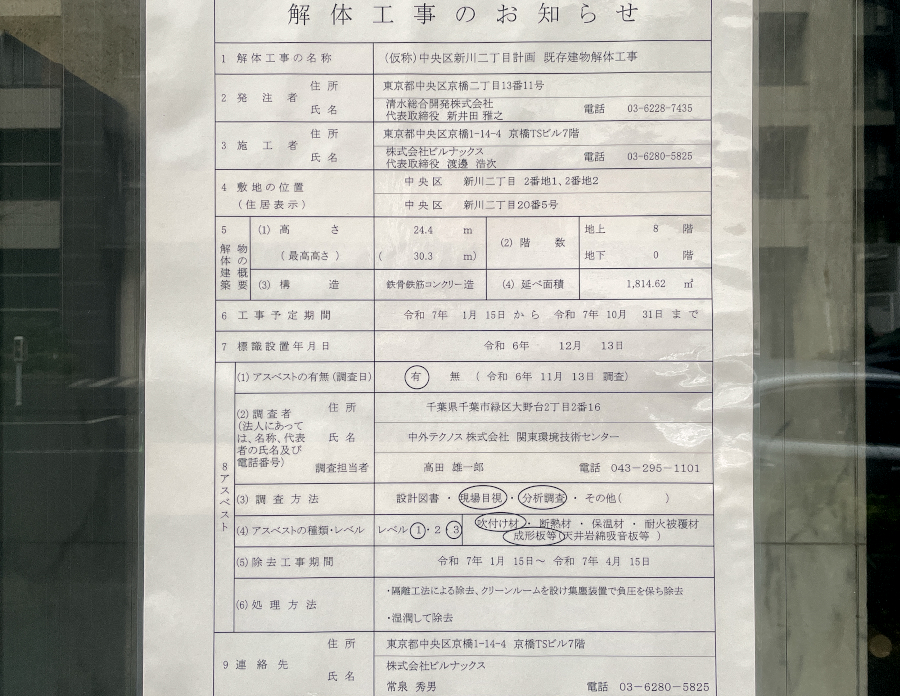 解体工事のお知らせ
1 解体工事の名称 (仮称)中央区新川二丁目計画 既存建物解体工事
2 発注者 住所 東京都中央区京橋二丁目13番11号
氏名 清水総合開発株式会社
代表取締役 新井田 雅之 電話 03-6228-7435
3 施工者 住所 東京都中央区京橋1-14-4 京橋TSビル7階
氏名 株式会社ビルナックス
代表取締役 渡邊 浩次 電話 03-6280-5825
4 敷地の位置 中央区 新川二丁目 2番地1、2番地2
(住居表示) 中央区 新川二丁目20番5号
5 解体建築物の概要 (1) 高さ 24.4 m (2) 階数 地上 8 階
(最高高さ) ( 30.3 m) 地下 0 階
(3) 構造 鉄骨鉄筋コンクリー造 (4) 延べ面積 1,814.62 ㎡
6 工事予定期間 令和 7年 1月 15日 から 令和 7年 10月 31日 まで
7 標識設置年月日 令和 6年 12月 13日
8 アスベスト (1) アスベストの有無(調査日) 有 無 ( 令和 6年 11月 13日 調査)
(2) 調査者 住所 千葉県千葉市緑区大野台2丁目2番16
(法人にあって
は、名称、代表 氏名 中外テクノス 株式会社 関東環境技術センター
者の氏名及び
電話番号) 調査担当者 髙田 雄一郎 電話 043-295-1101
(3) 調査方法 設計図書 ・ 現場目視 ・ 分析調査 ・ その他( )
(4) アスベストの種類・レベル レベル 1 ・ 2 ・ 3 吹付け材 ・ 断熱材 ・ 保温材 ・ 耐火被覆材
成形板等(天井岩綿吸音板等 )
(5) 除去工事期間 令和 7年 1月 15日～ 令和 7年 4月 15日
(6) 処理方法 ・隔離工法による除去、クリーンルームを設け集塵装置で負圧を保ち除去
・湿潤して除去
9 連絡先 住所 東京都中央区京橋1-14-4 京橋TSビル7階
氏名 株式会社ビルナックス
常泉 秀男 電話 03-6280-5825